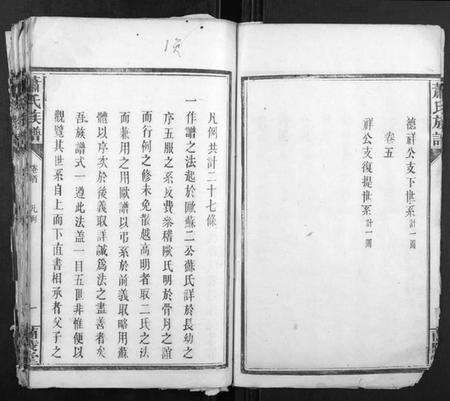 蕭氏族譜
德祥公支下世系計一圖
卷五
祥公支復提世系計一圖
凡例共計二十七條
一作譜之法起於歐蘇二公蘇氏詳於長幼之
序五服之系反費參稽歐氏明於骨肉之誼
而行例之修未免散越高明者取二氏之法
而兼用之用歐譜以弔系於前義取略用蘇
體以序次於後義取詳誠為法之盡善者矣
吾族譜式一遵此法蓋一目五世非惟便以
觀覽其世系自上而下直書相承者父子之
蕭氏族譜
卷首
凡例
一